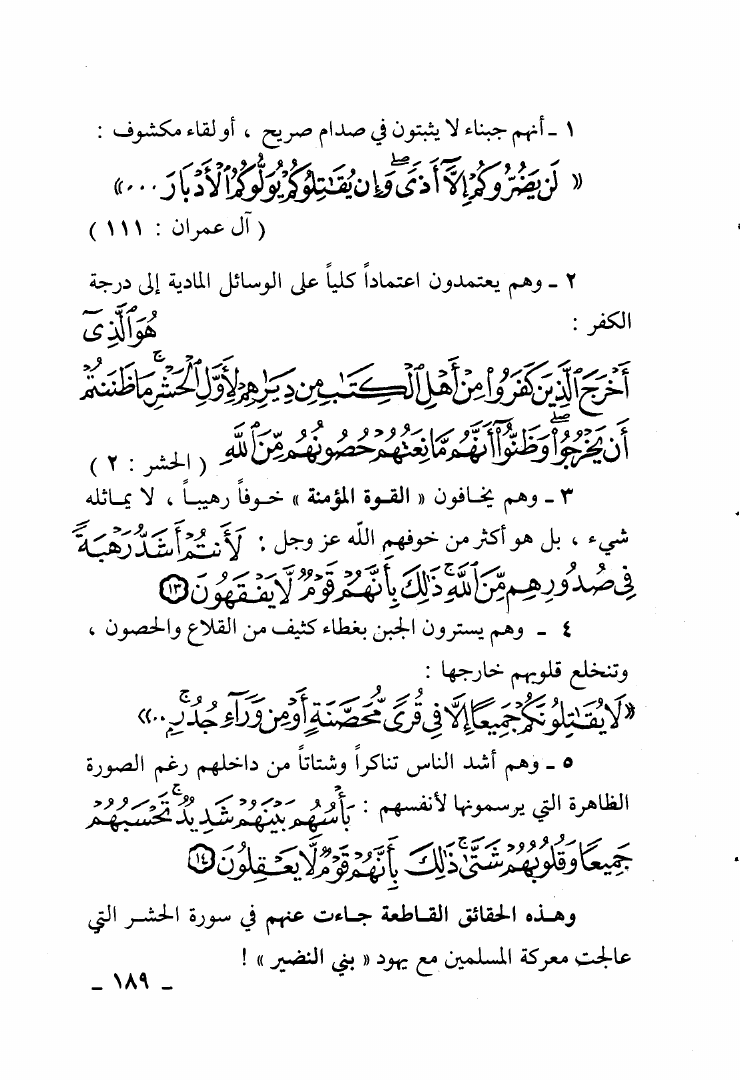 ١ ـ أنهم جبناء لا يثبتون في صدام صريح ، أو لقاء مكشوف :
« لَن يَضُرُّوكُمْ إِلَّآ أَذًى ۖ وَإِن يُقَٰتِلُوكُمْ يُوَلُّوكُمُ ٱلْأَدْبَارَ ... »
( آل عمران : ١١١ )
٢ ـ وهم يعتمدون اعتماداً كلياً على الوسائل المادية إلى درجة
الكفر : هُوَ ٱلَّذِىٓ
أَخْرَجَ ٱلَّذِينَ كَفَرُوا۟ مِنْ أَهْلِ ٱلْكِتَٰبِ مِن دِيَٰرِهِمْ لِأَوَّلِ ٱلْحَشْرِ ۚ مَا ظَنَنتُمْ
أَن يَخْرُجُوا۟ ۖ وَظَنُّوٓا۟ أَنَّهُم مَّانِعَتُهُمْ حُصُونُهُم مِّنَ ٱللَّهِ ( الحشر : ٢ )
٣ ـ وهم يخافون « القوة المؤمنة » خوفاً رهيباً ، لا يماثله
شيء ، بل هو أكثر من خوفهم الله عز وجل : لَأَنتُمْ أَشَدُّ رَهْبَةً
فِى صُدُورِهِم مِّنَ ٱللَّهِ ۚ ذَٰلِكَ بِأَنَّهُمْ قَوْمٌ لَّا يَفْقَهُونَ ١٣
٤ ـ وهم يسترون الجبن بغطاء كثيف من القلاع والحصون ،
وتنخلع قلوبهم خارجها :
« لَا يُقَٰتِلُونَكُمْ جَمِيعًا إِلَّا فِى قُرًى مُّحَصَّنَةٍ أَوْ مِن وَرَآءِ جُدُرٍۭ ۚ .. »
٥ ـ وهم أشد الناس تناكراً وشتاتاً من داخلهم رغم الصورة
الظاهرة التي يرسمونها لأنفسهم : بَأْسُهُم بَيْنَهُمْ شَدِيدٌ ۚ تَحْسَبُهُمْ
جَمِيعًا وَقُلُوبُهُمْ شَتَّىٰ ۚ ذَٰلِكَ بِأَنَّهُمْ قَوْمٌ لَّا يَعْقِلُونَ ١٤
وهذه الحقائق القاطعة جاءت عنهم في سورة الحشر التي
عالجت معركة المسلمين مع يهود « بني النضير » !
ـ ١٨٩ ـ